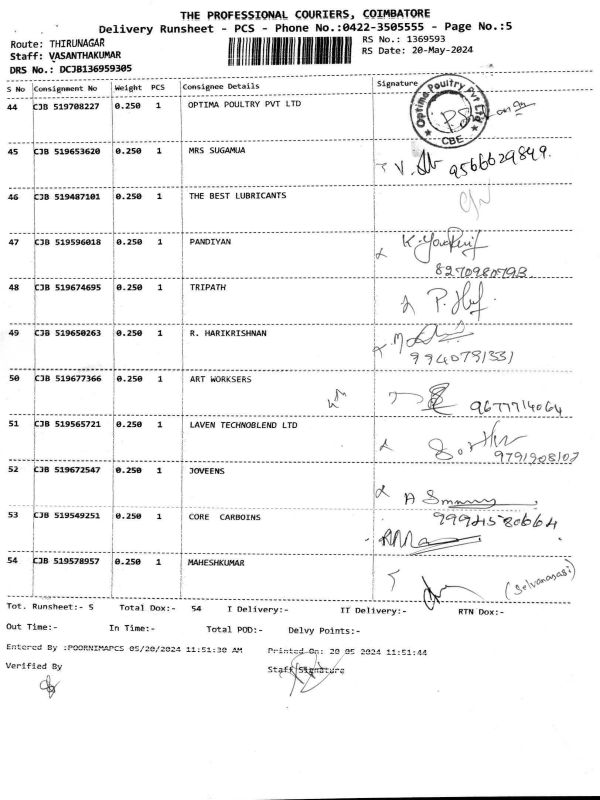 THE PROFESSIONAL COURIERS, COIMBATORE
Delivery Runsheet - PCS - Phone No.:0422-3505555 - Page No.:5
Route: THIRUNAGAR RS No.: 1369593
Staff: VASANTHAKUMAR RS Date: 20-May-2024
DRS No.: DCJB136959305
S No Consignment No Weight PCS Consignee Details Signature
44 CJB 519708227 0.250 1 OPTIMA POULTRY PVT LTD
Optima Poultry Pvt Ltd
CBE
45 CJB 519653620 0.250 1 MRS SUGAMUA
9566629849.
46 CJB 519487101 0.250 1 THE BEST LUBRICANTS
47 CJB 519596018 0.250 1 PANDIYAN
8270980793
48 CJB 519674695 0.250 1 TRIPATH
49 CJB 519650263 0.250 1 R. HARIKRISHNAN
9940791331
50 CJB 519677366 0.250 1 ART WORKSERS
9677714064
51 CJB 519565721 0.250 1 LAVEN TECHNOBLEND LTD
9791908102
52 CJB 519672547 0.250 1 JOVEENS
53 CJB 519549251 0.250 1 CORE CARBOINS
54 CJB 519578957 0.250 1 MAHESHKUMAR
Tot. Runsheet:- 5 Total Dox:- 54 I Delivery:- II Delivery:- RTN Dox:-
Out Time:- In Time:- Total POD:- Delvy Points:-
Entered By :POORNIMAPCS 05/20/2024 11:51:30 AM Printed On: 20 05 2024 11:51:44
Verified By Staff Signature